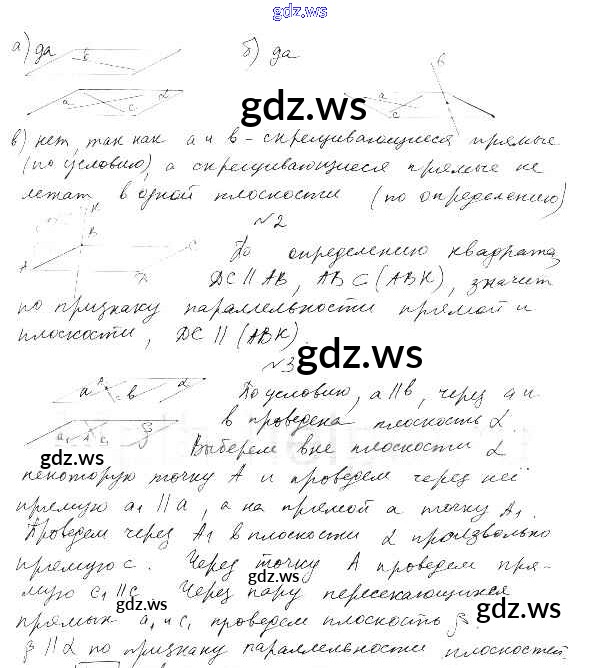 gdz.ws
а) да б) да
gdz.ws
в) нет, так как а и в - скрещивающиеся прямые
(по условию), а скрещивающиеся прямые не
лежат в одной плоскости (по определению)
№2
По определению квадрата,
DC || AB, AB ⊂ (ABK), значит
по признаку параллельности прямой и
плоскости, DC || (ABK)
gdz.ws
№3
По условию, a || b, через a и
b проведена плоскость α.
Выберем вне плоскости α
gdz.ws
некоторую точку A и проведем через неё
прямую a₁ || a, а на прямой a точку A₁.
Проведем через A₁ в плоскости α произвольно
прямую c. Через точку A проведем пря-
мую c₁ || c. Через пару пересекающихся
gdz.ws gdz.ws
прямых a₁ и c₁ проведем плоскость β.
β || α по признаку параллельности плоскостей